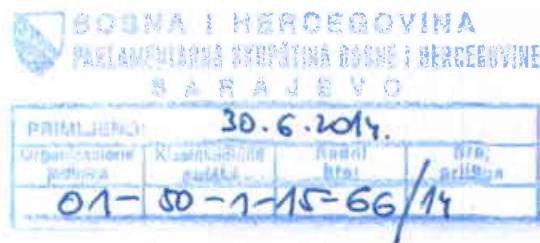 BOSNA I HERCEGOVINA
PARLAMENTARNA SKUPŠTINA BOSNE I HERCEGOVINE
SARAJEVO
PRIMLJENO: 30.6.2014.
Organizaciona jedinica Klasifikaciona oznaka Redni broj Broj priloga
01- 50-1-15-66/14